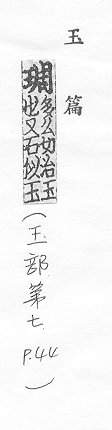 玉篇
琱
多幺切治玉
也又石似玉
(玉部第七 P.44)